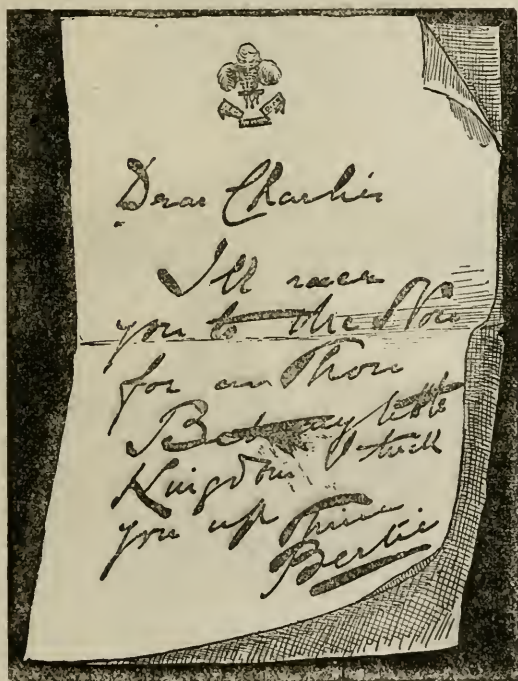 Dear Charlie
I'll race
you to the Nore
for an Thou
Bet my bott
Kingdom I lick
you up Thine
Bertie